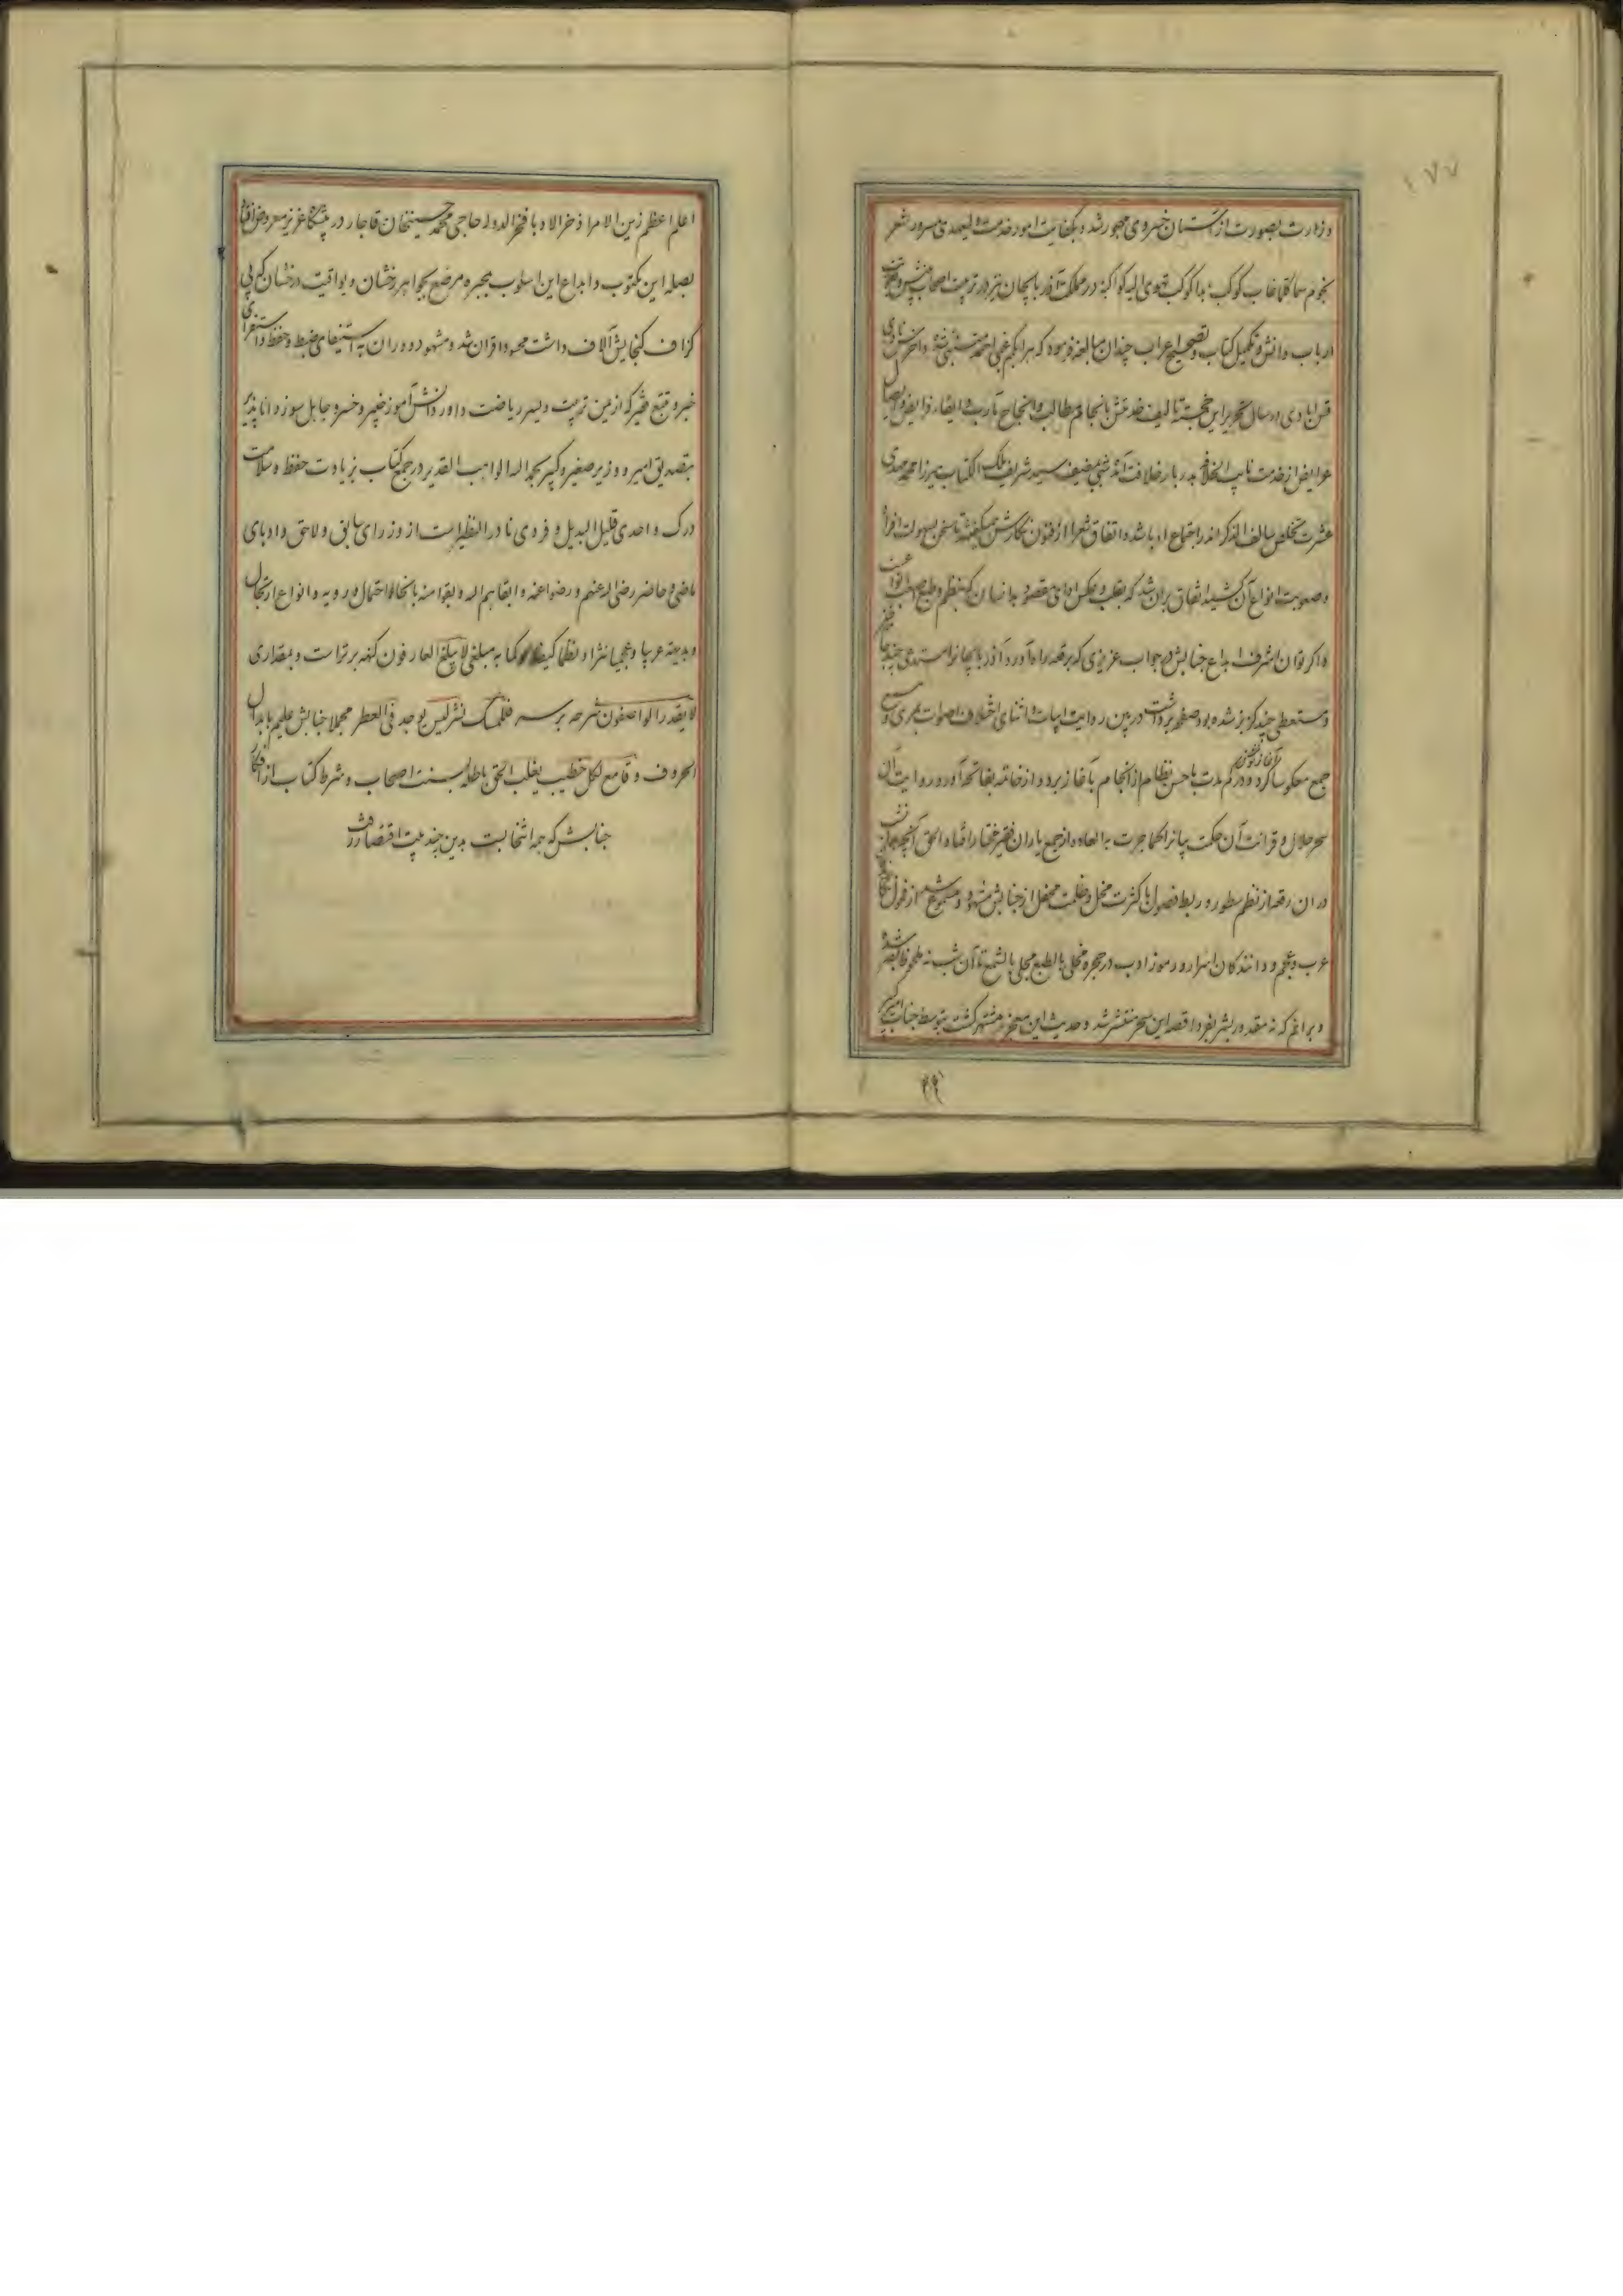 ۱۷۷
وزارت بصورت از آستان خسروی مهجور شد و بکفایت امور خدمت ولیعهدی مسرور شعر
نجوم سماء کلما غاب کوکب بدا کوکب تهوی الیه کواکبه در مملکت آذربایجان نیز در تربیت اصحاب بینش و تقویت
ارباب دانش و تکمیل کتاب و تصحیح اعراب چندان مبالغه فرمود که هر ابکم غبی احمد متنبی شد و هر اخرس نادی
قس ایادی در سال تحریر این خجسته تالیف خدمتش بانجام مطالب و انجاح مآرب و ایفاء فرایض و ایصال
عرایض از خدمت نایب الخلافه بدربار خلافت آمد شبی بضیف سید شریف ملک الکتاب میرزا محمد مهدی
عشرت تخلص سالف الذکر اندر اجتماع ادبا شد و اتفاق شعرا از فنون نگارش همیگفتند تا سخن بسهولت افراد
وصعوبت انواع آن کشید اتفاق بران شد که بقلب و عکس ادای مقصود بدانسان که بنظم و طبع اصعب انواعست
و اگر توان اشرف ابداع جنابش در جواب عزیزی که برقعه راه آورد آذربایجان را مستدعی
ومستعطی چیز کز بز شده بود صفحه برداشت در بین روایت ابیات و اثنای اختلاف اصوات
جمع معکوسا کرد و در کم مدت باحسن نظام از انجام بآغاز برد و از خاتمه بفاتحه آورد روایت آن
آغاز نوشتن
سحر حلال و قرائت آن حکمت بیانرا کما جرت به العاده از جمع یاران فقیر مختار افتاد الحق آنچه
در ان رقعه از نظم سطور و ربط فصول با کثرت مخل و غلبت محفل از جنابش مشهود و مسموع شد از فحول
عرب و عجم و دانندگان اسرار و رموز ادب در حجره مخلی بالطبع مجلی بالشمع تا آن شب نه ملحوظ بصر شده
و برانم که نه مقدور بشر بفردا قصه این سحر منتشر شد و حدیث این معجز مشتهر گشت بتوسط جناب امیر
۳۹۱
اعلم اعظم زین الامرا ذخر الادبا فخر الدوله حاجی محمد حسینخان قاجار در پیشگاه عزیز معروض افتاد
بصله این مکتوب و ابداع این اسلوب محبره مرصع بجواهر رخشان و یواقیت درخشان که بی
گزاف گنجایش آلاف داشت محسود اقران شد و مشهود دوران به استیفای ضبط و حفظ و استقرای
خبر و تتبع فقیر که از یمن تربیت و یسر ریاضت داور دانش آموز خبیر و خسرو جاهل سوز دانا پذیر
بتصدیق امیر و وزیر صغیر و کبیر بحمد اله الواهب القدیر در جمع کتاب بزیادت حفظ و سلامت
درک واحدی قلیل البدیل و فردی نادر النظیر است از وزرای سابق و لاحق و ادبای
ماضی و حاضر رضی اله عنهم و رضوا عنه و ابقاهم اله و بقوا منه بانحاء احتمال و رویه و انواع ارتجال
و بدیهه عربیا و عجمیا نثرا و نظما کیفا و کما به مبلغی لا یبلغ العارفون کنهه برتر است و بمقداری
لا یقدر الواصفون شرحه برسر فللمسک نشر لیس یوجد فی العطر مجملا جنابش علیم بابدال
الحروف و قامع لکل خطیب یغلب الحق باطله بسنت اصحاب و شرط کتاب از افکار
جنابش که همه انتخابست بدین چند بیت اقتصار رفت